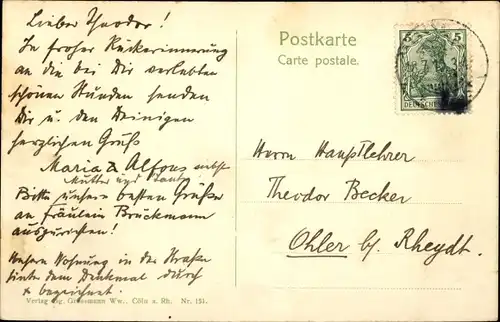 Lieber Theodor!
In froher Rückerinnerung
an die bei Dir verlebten
schönen Stunden senden
Dir u. den Deinigen
herzlichen Gruß
Maria & Alfons nebst
Mutter und Tante
Bitte unsere besten Grüße
an Fräulein Brückmann
auszurichten!
Unsere Wohnung in der Straße
hinter dem Denkmal durch
x bezeichnet.
Verlag Wwe., Cöln a. Rh. Nr. 151.
Postkarte
Carte postale.
5 5
DEUTSCHES
Herrn Hauptlehrer
Theodor Becker
Ohler b/ Rheydt.